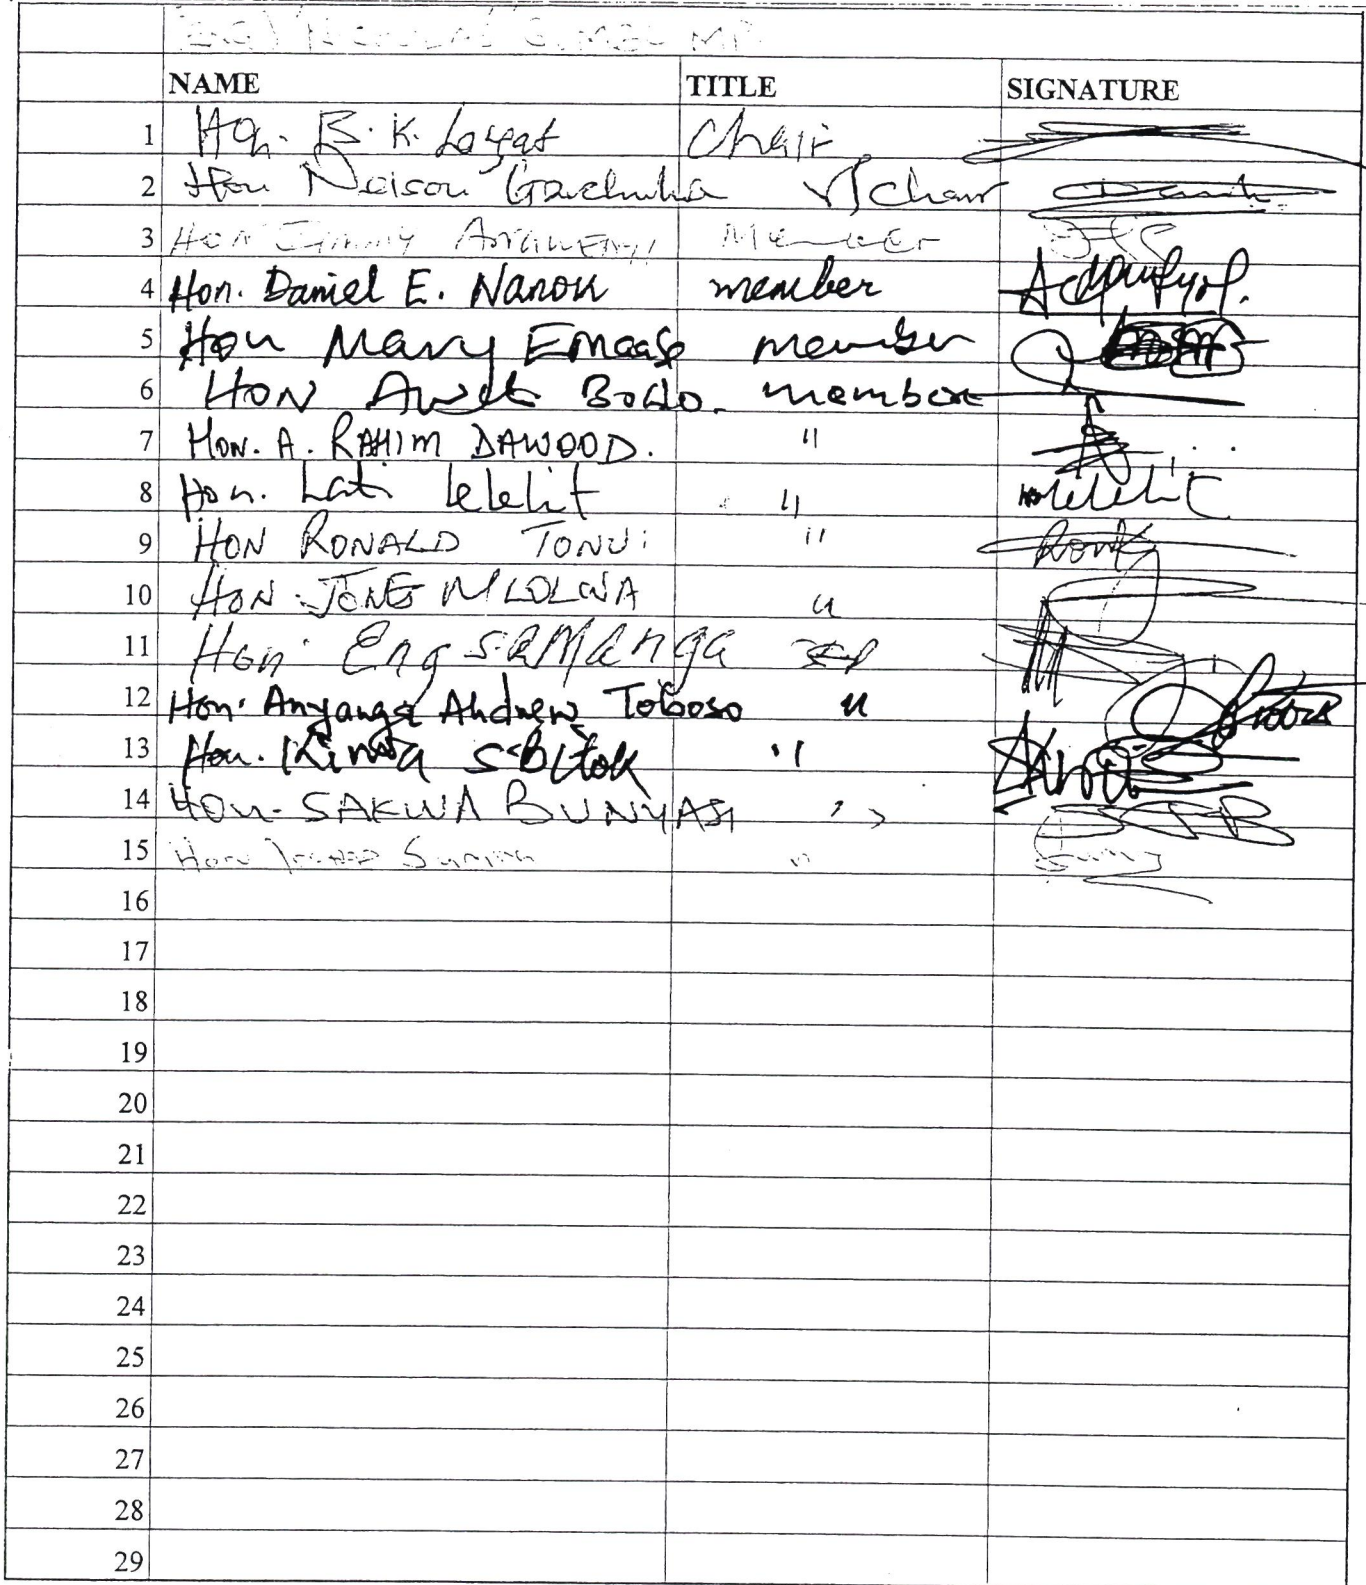 NAME TITLE SIGNATURE
1 Hon. B. K. Langat Chair
2 Hon Nelson Gaichuhie V/Chair
3 HON Jimmy Angwenyi Member
4 Hon. Daniel E. Nanok member
5 Hon Mary Emaase member
6 HON member
7 HON. A. RAHIM DAWOOD. "
8 Hon. Lati Lelelit "
9 HON RONALD TONUI "
10 HON. JONES MLOLWA "
11 Hon. Eng
12 Hon. Anyanga Andrew Toboso "
13 Hon. Kirwa S. Bitok "
14 HON. SAKWA BUNYASI ,,
15 Hon "
16
17
18
19
20
21
22
23
24
25
26
27
28
29